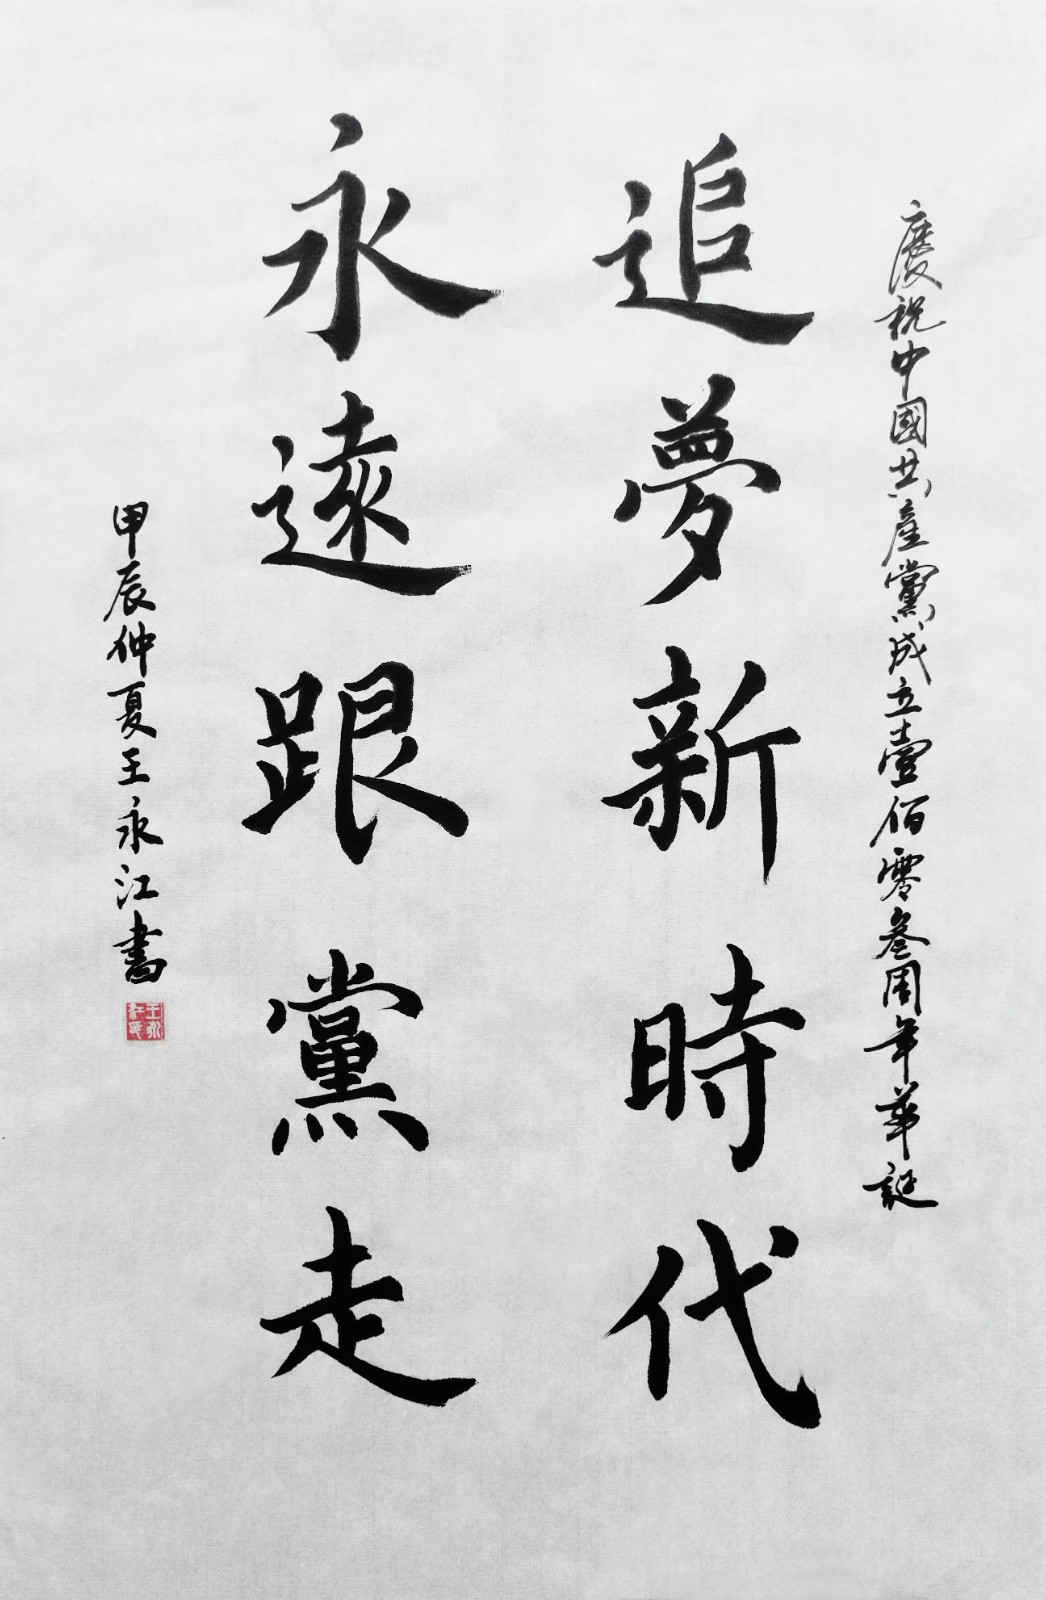 慶祝中國共産黨成立壹佰零叄周年華誕
追夢新時代
永遠跟黨走
甲辰仲夏王永江書
王永江印